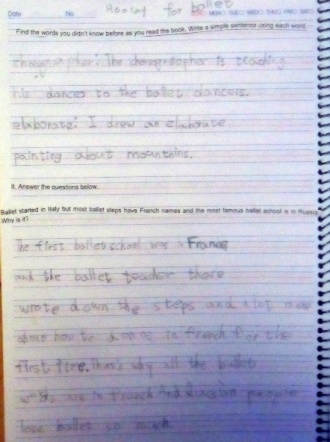 Hooray for ballet
Date No. MON TUE WED THU FRI SAT
Find the words you didn't know before as you read the book. Write a simple sentence using each word.
choreographer: The choreographer is teaching
his dances to the ballet dancers.
elaborate: I drew an elaborate
painting about mountains.
II. Answer the questions below.
Ballet started in Italy but most ballet steps have French names and the most famous ballet school is in Russia.
Why is it?
The first ballet school was in France
and the ballet teacher there
wrote down the steps and a lot more
about how to dance in french for the
first time. That's why all the ballet
words are in french And Russian people
love ballet so much.